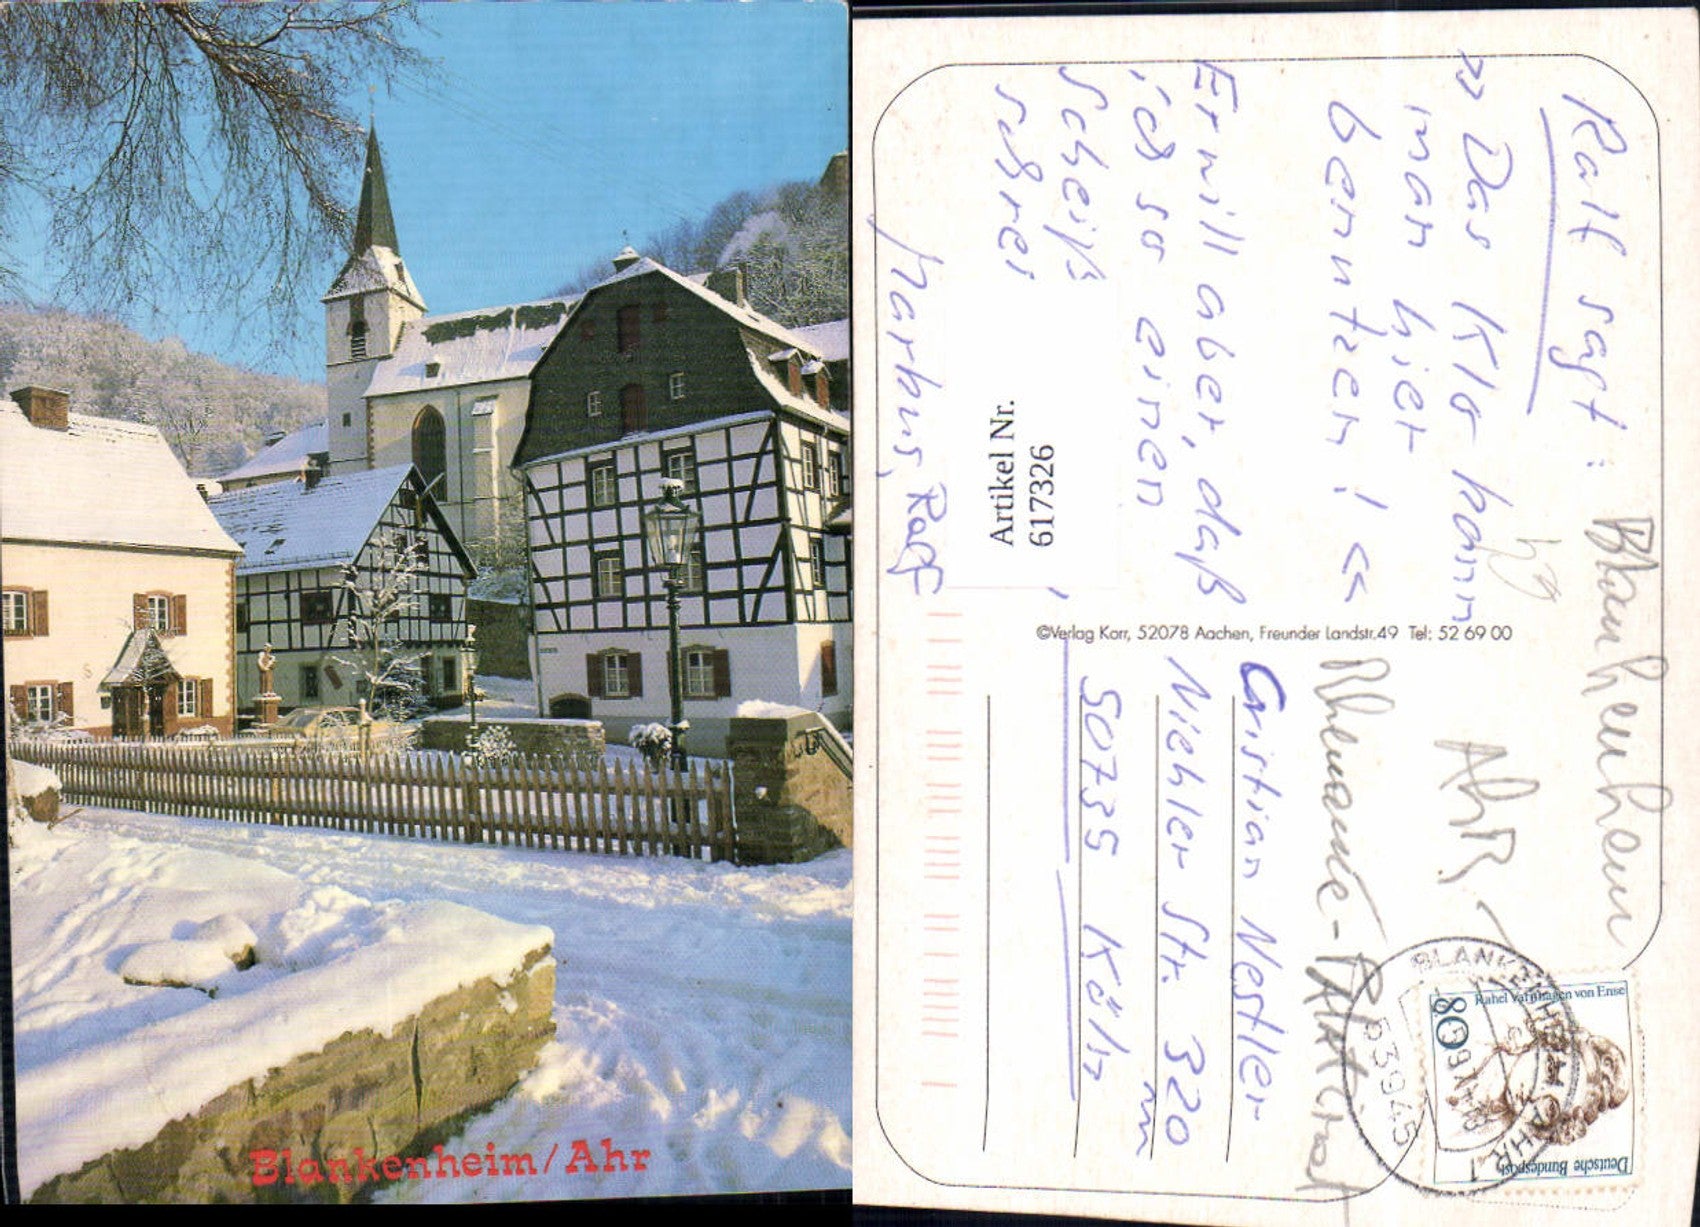 Blankenheim/Ahr
Ralf sagt:
»Das Klo kann
man hier
benutzen!«
Er will aber, daß
ich so einen
Scheiß
schrei
Markus, Ralf
Artikel Nr.
617326
©Verlag Korr, 52078 Aachen, Freunder Landstr.49 Tel: 52 69 00
Blankenheim
Ahr
Cristian Nestler
Niehler Str. 320
50735 Köln
Rahel Varnhagen von Ense
80
Deutsche Bundespost
BLANKENHEIM, AHR 1
53945